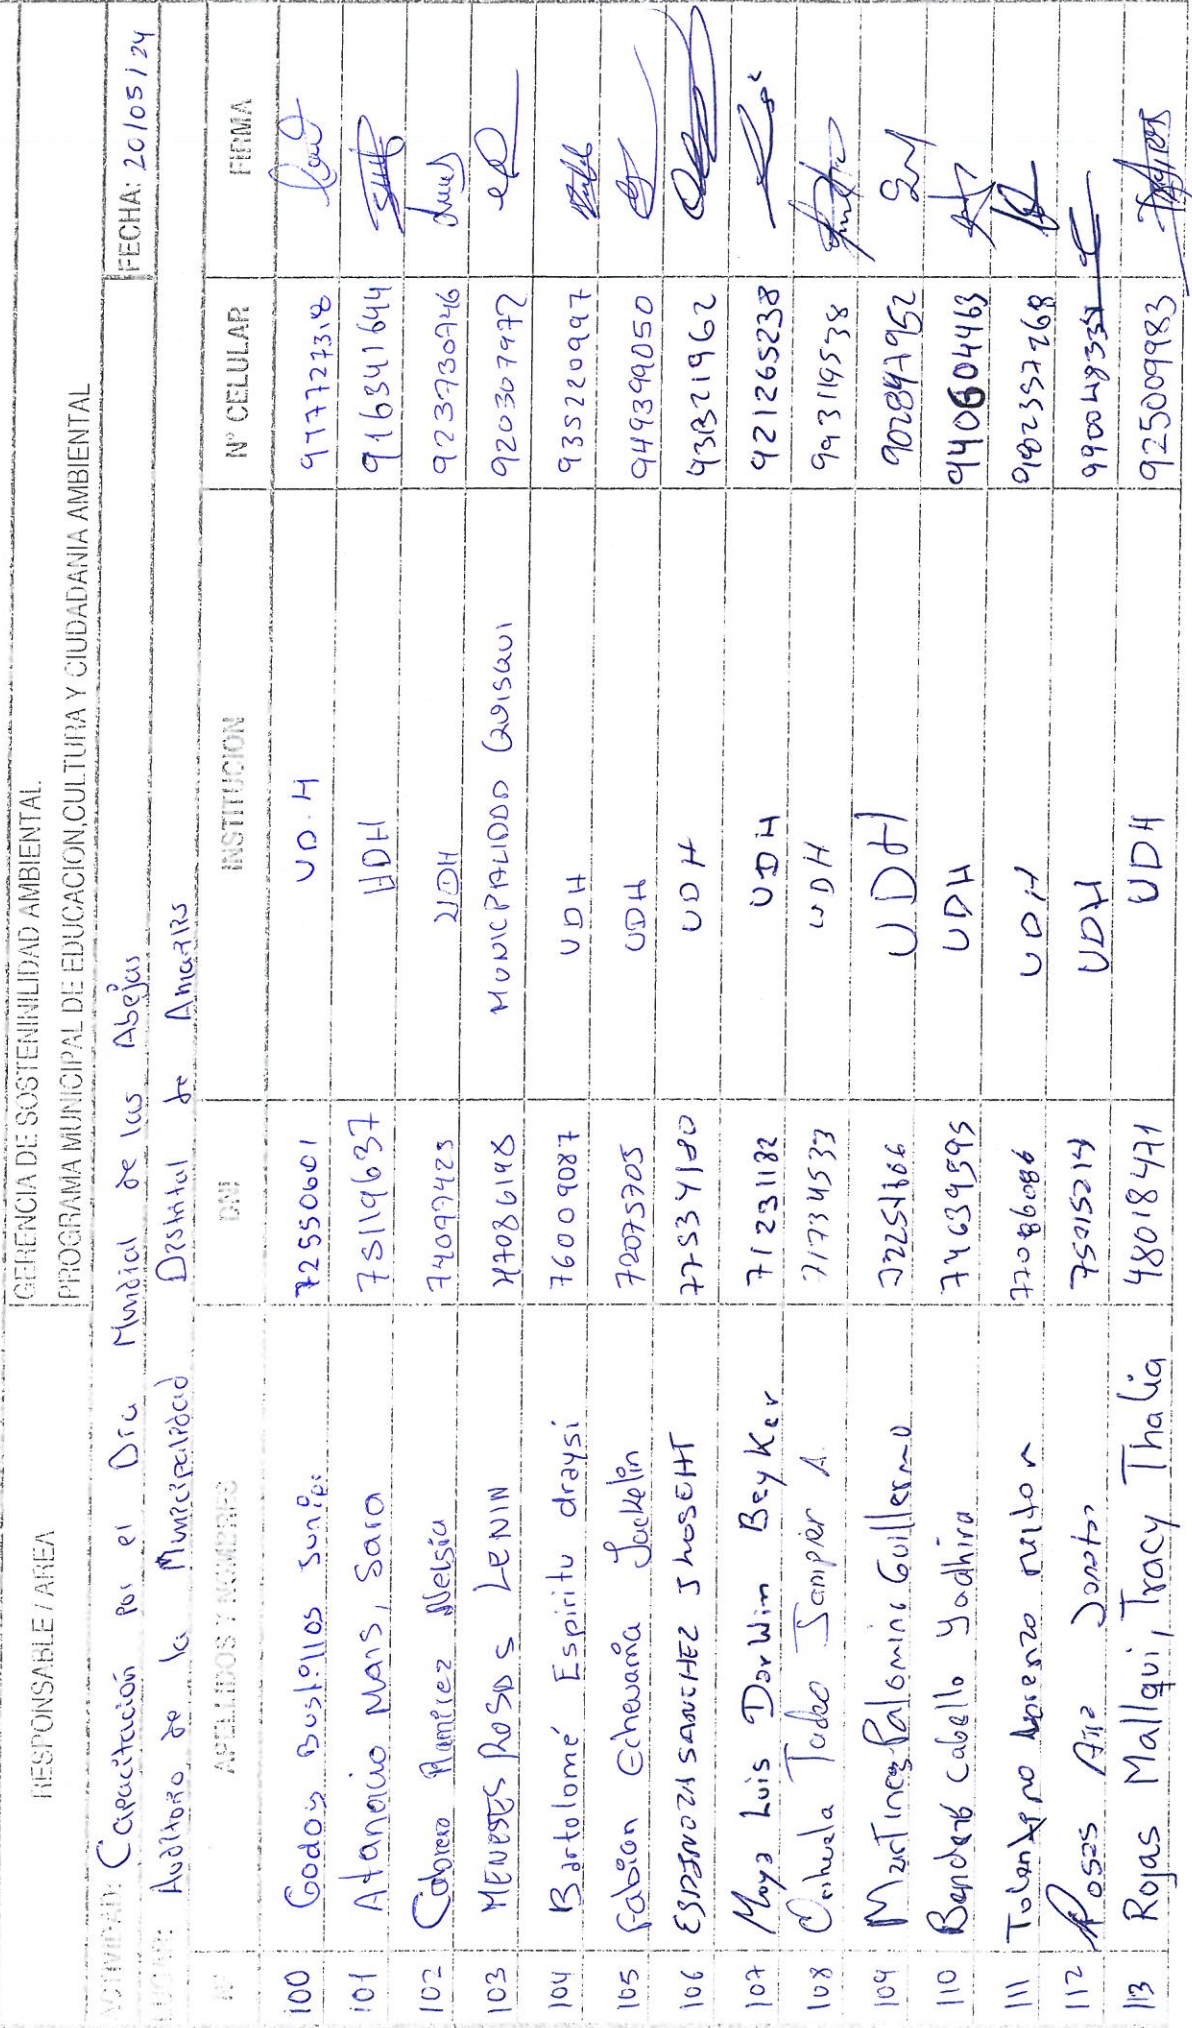 RESPONSABLE / AREA GERENCIA DE SOSTENINILIDAD AMBIENTAL.
PROGRAMA MUNICIPAL DE EDUCACION,CULTURA Y CIUDADANIA AMBIENTAL
ACTIVIDAD: Capacitación por el Día Mundial de las Abejas FECHA: 20/05/24
LUGAR: Auditoro de la Municipalidad Distrital de Amarilis
N° APELLIDOS Y NOMBRES DNI INSTITUCION N° CELULAR FIRMA
100 Godoy Bustillos 72550601 UD.H
101 Atanacio Mais, Sara 75119637 UDH 916341644
102 Cabrera Ramirez Nelsia 74097423 UDH 923730746
103 MENESES ROSAS LENIN 47086148 MUNICPALIDAD QUISQUI 920307977
104 Bartolomé Espiritu draysi 76009087 UDH 935220997
105 Fabian Echevarria Jackelin 72075705 UDH 949399050
106 ESPINOZA SANCHEZ JHOSEHT 77534180 UDH 931321962
107 Moya Luis DarWin BeyKer 71231182 UDH 921265238
108 Orihuela Tadeo Jampier A. 71734533 UDH 993119538
109 Martinez Palomino Guillermo UDH 902847952
110 Cabello Yadhira 74639595 UDH 940604463
111 Tolentino Lorenzo milton 77086086 UDH
112 Rosas Jonatan 75015214 UDH
113 Rojas Mallqui, Tracy Thalia 48018471 UDH 925009983